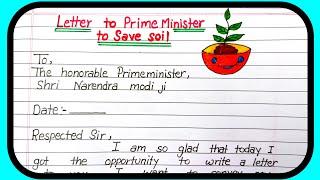 Letter to Prime Minister
to Save soil
To,
The honorable Primeminister,
Shri Narendra modi ji
Date:-
Respected Sir,
I am so glad that today I
got the opportunity to write a letter
to you. I want to convey